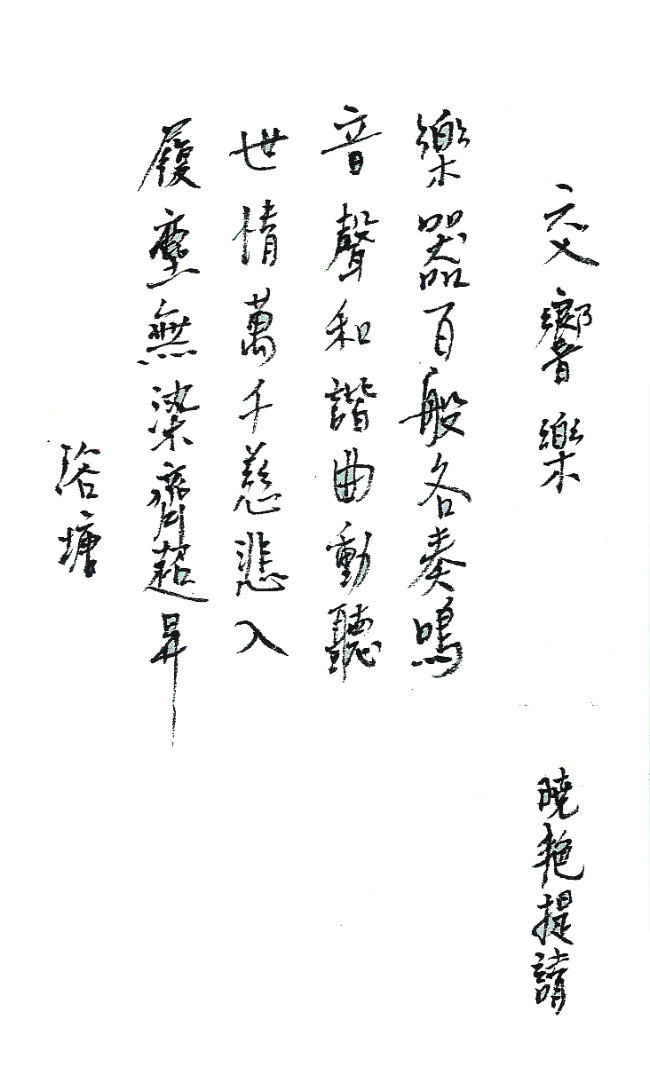 交響樂
曉艷提請
樂器百般各奏鳴
音聲和諧曲動聽
世情萬千慈悲入
履塵無染齊超昇
浴塘